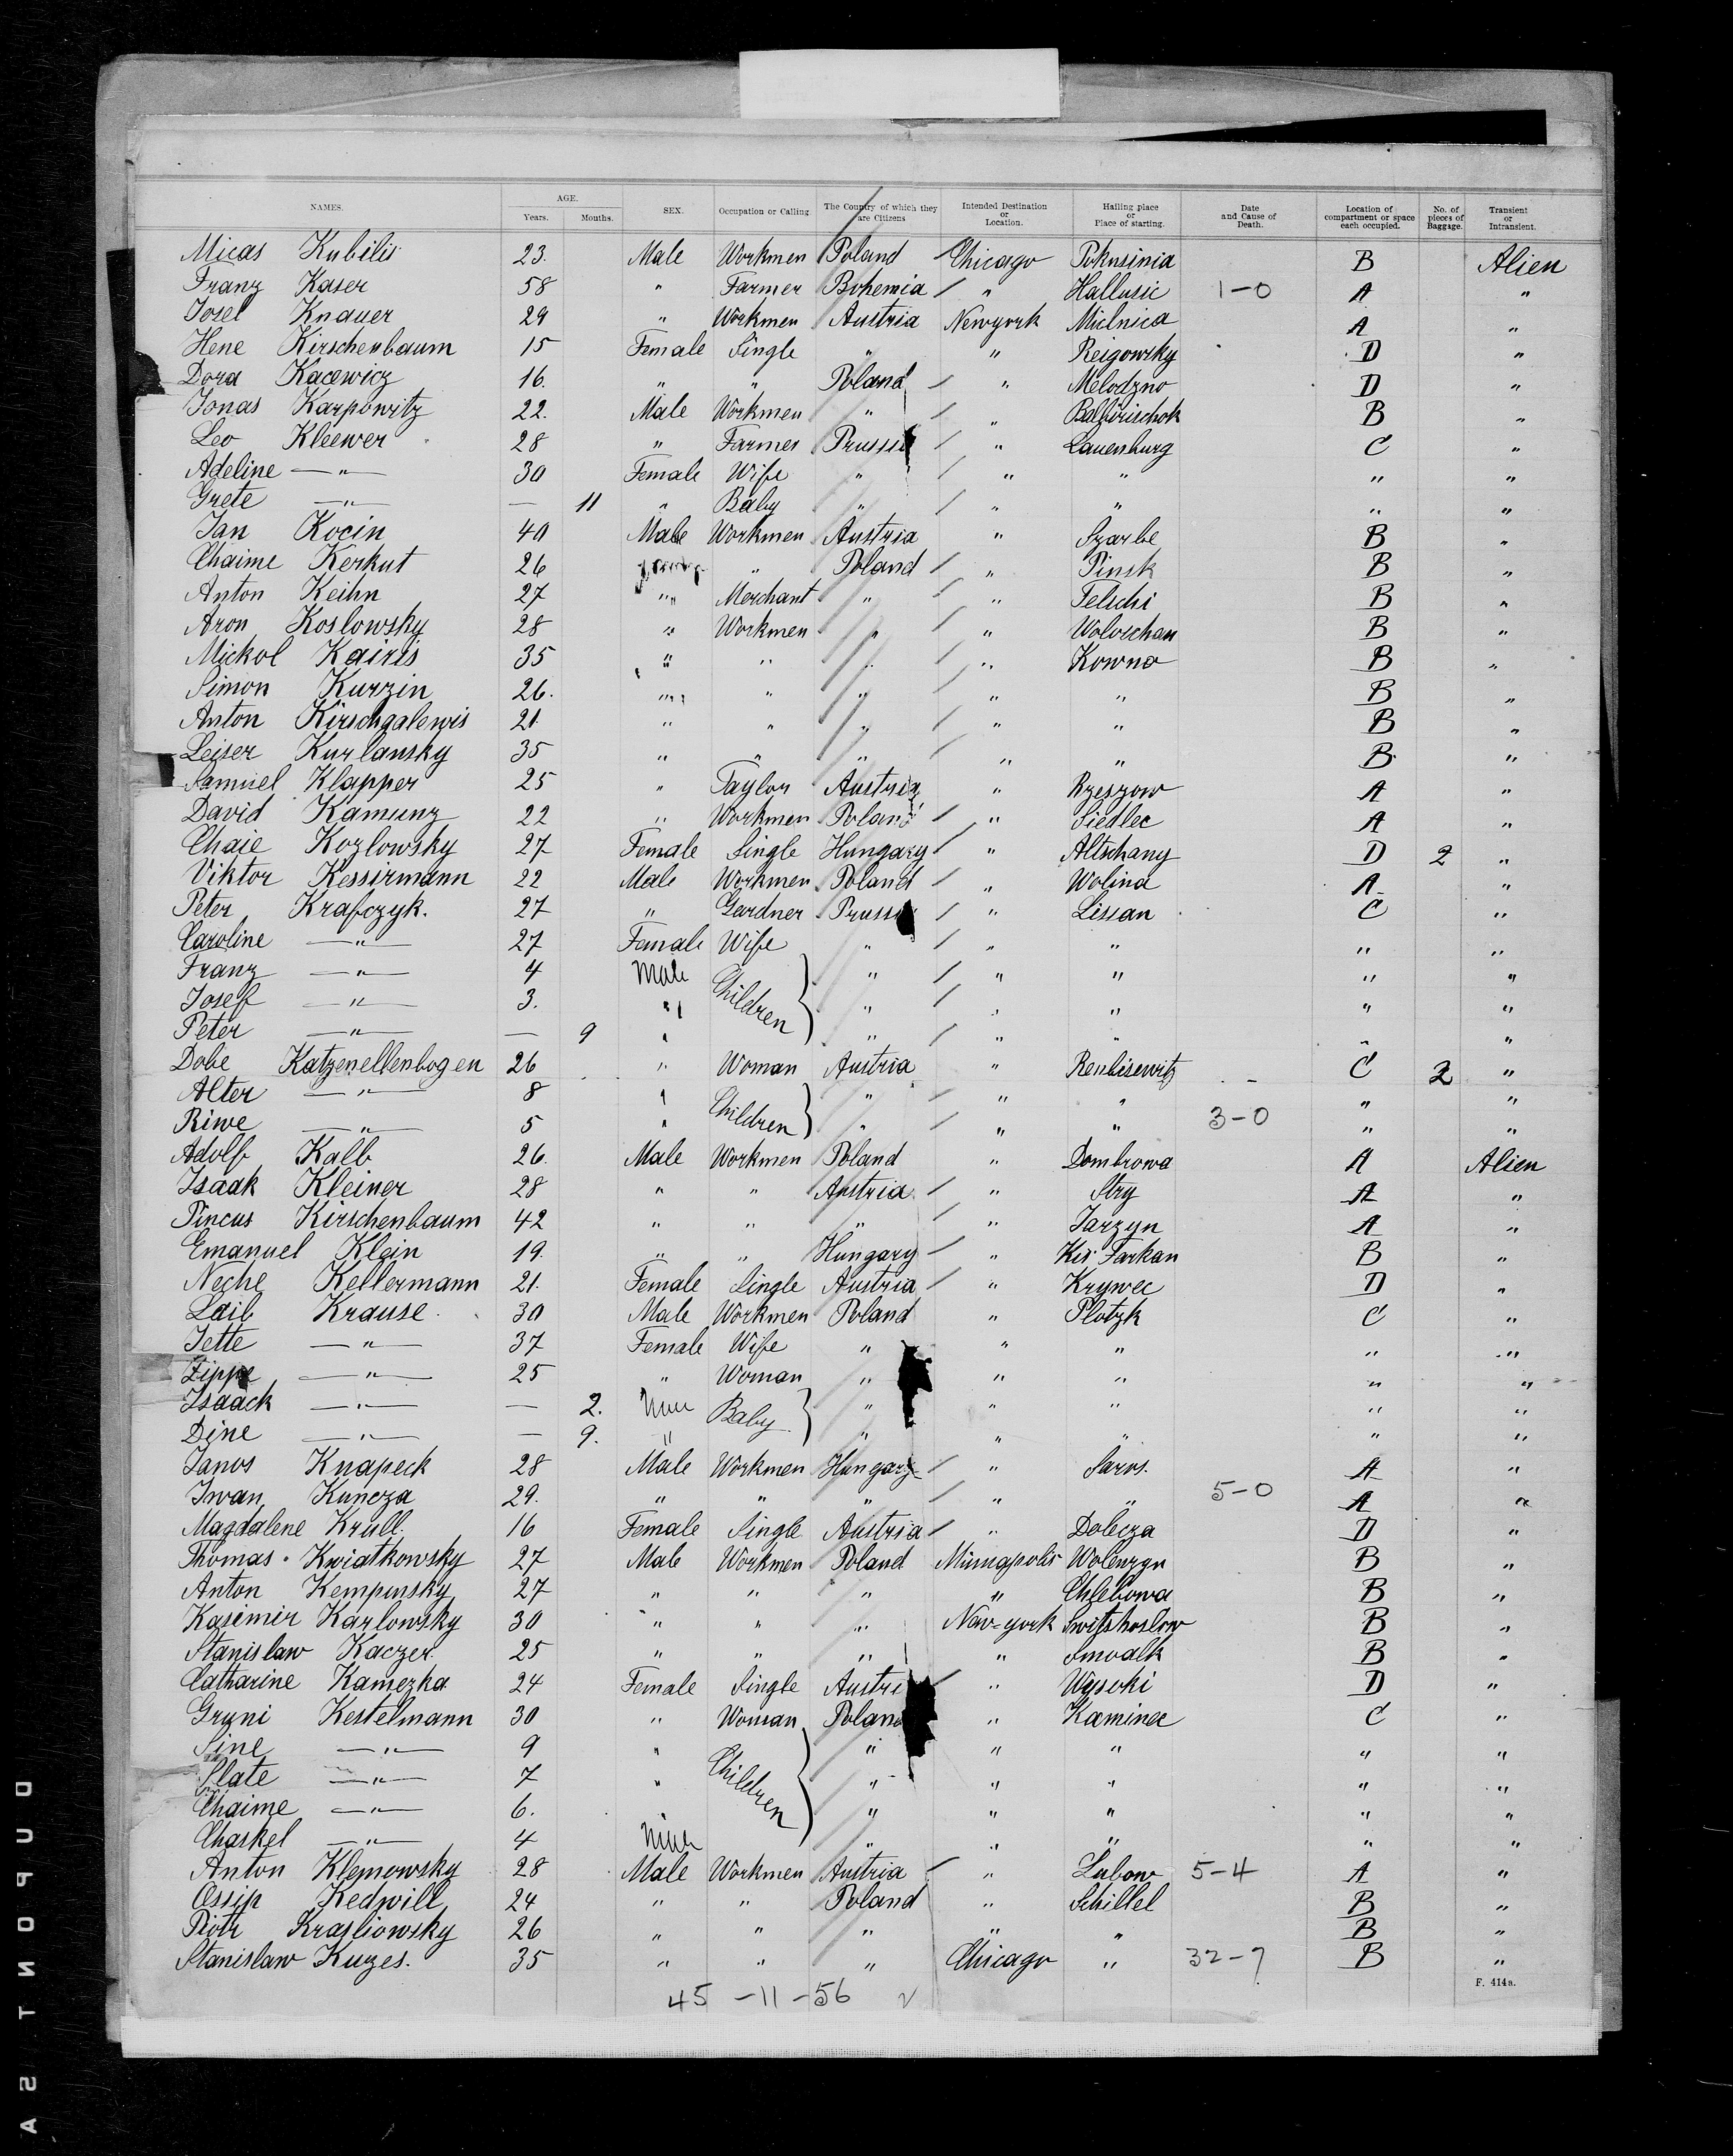 NAMES. AGE. Years. Months. SEX. Occupation or Calling The Country of which they are Citizens Intended Destination or Location. Hailing place or Place of starting. Date and Cause of Death. Location of compartment or space each occupied. No. of pieces of Baggage. Transient or Intransient.
Micas Kubilis 23. Male Workmen Poland Chicago Pokusinia B Alien
Franz Kaser 58 " Farmer Bohemia " Hallusic 1-0 A "
Josel Knauer 29 " Workmen Austria Newyork Mielnica A "
Hene Kirschenbaum 15 Female Single " " Reigowsky D "
Dora Kacewicz 16. " " Poland " Melodzno D "
Jonas Karpowitz 22. Male Workmen " " Balbirischok B "
Leo Kleewer 28 " Farmer Prussi " Lauenburg C "
Adeline —"— 30 Female Wife " " " " "
Grete —"— — 11 " Baby " " " " "
Jan Kocin 40 Male Workmen Austria " Szarbe B "
Chaime Kerkut 26 " Poland " Pinsk B "
Anton Keihn 27 " Merchant " " Telschi B "
Aron Koslowsky 28 " Workmen " " Woloschan B "
Mickol Kairis 35 " " " " Kowno B "
Simon Kurzin 26. " " " " " B "
Anton Kirschgalewis 21 " " " " " B "
Leiser Kurlansky 35 " " " " " B. "
Samuel Klapper 25 " Taylor Austria " Rzeszow A "
David Kamunz 22 " Workmen Poland " Siedlec A "
Chaie Kozlowsky 27 Female Single Hungary " Altschany D 2 "
Viktor Kessirmann 22 Male Workmen Poland " Wolina A "
Peter Krafczyk. 27 " Gardner Pruss " Lissan C "
Caroline —"— 27 Female Wife " " " " "
Franz —"— 4 Male Children " " " " "
Josef —"— 3. " " " " " "
Peter —"— — 9 " " " " " "
Dobe Katzenellenbogen 26 " Woman Austria " Renbisewitz C 2 "
Alter —"— 8 " Children " " " " "
Riwe —"— 5 " " " " 3-0 " "
Adolf Kalb 26. Male Workmen Poland " Dombrowa A Alien
Isaak Kleiner 28 " " Austria " Stry A "
Pincus Kirschenbaum 42 " " " " Jarzyn A "
Emanuel Klein 19. " " Hungary " Kis Farkan B "
Neche Kellermann 21. Female Single Austria " Krywec D "
Laib Krause 30 Male Workmen Poland " Plotzk C "
Jette —"— 37 Female Wife " " " " "
Zippe —"— 25 " Woman " " " " "
Isaack —"— — 2. Baby " " " " "
Dine —"— — 9. " " " " " "
Janos Knapeck 28 Male Workmen Hungary " Saros. A "
Iwan Kuncza 29. " " " " " 5-0 A "
Magdalene Krull. 16 Female Single Austria " Dolecza D "
Thomas Kwiatkowsky 27 Male Workmen Poland Minnapolis Wolenzyn B "
Anton Kempinsky 27 " " " " Chlebowa B "
Kasimir Karlowsky 30 " " " New-york Switshoslow B "
Stanislaw Kaczer. 25 " " " " Suwalk B "
Catharine Kamezka 24 Female Single Austri " Wysoki D "
Gruni Kestelmann 30 " Woman Poland " Kaminec C "
Sine —"— 9 " Children " " " " "
Slate —"— 7 " " " " " "
Chaime —"— 6. " " " " " "
Chaskel —"— 4 " " " " "
Anton Klemowsky 28 Male Workmen Austria " Lubow 5-4 A "
Ossip Kedwill 24 " " Poland " Schillel B "
Piotr Krasliowsky 26 " " " " " B "
Stanislaw Kuzes. 35 " " " Chicago " 32-7 B "
F. 414a.
45 -11 -56 √
DUPONT SA